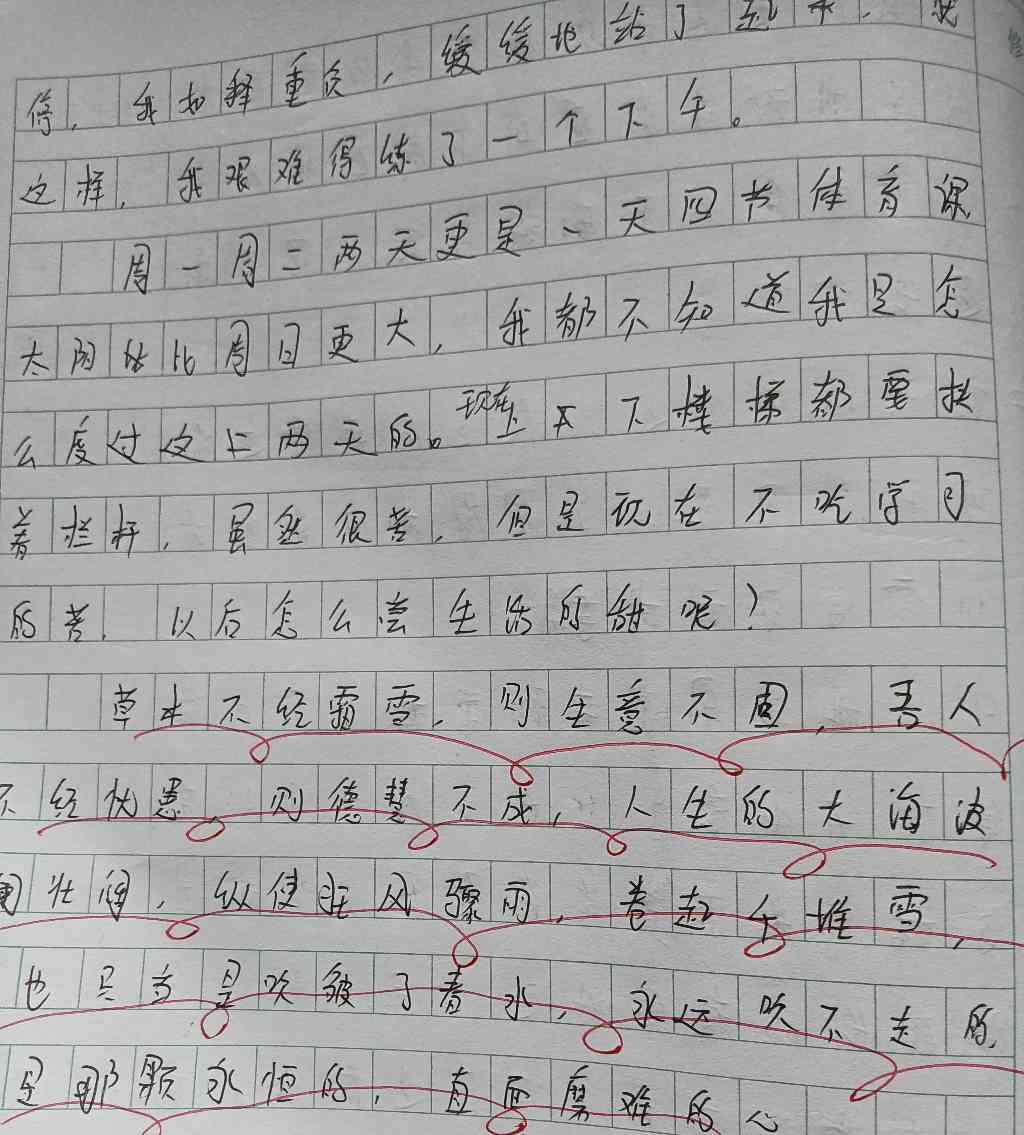 停，我如释重负，缓缓地站了起来，就
这样，我艰难得练了一个下午。
周一周二两天更是一天四节体育课
太阳比周日更大，我都不知道我是怎
么度过这上两天的。现在上下楼梯都要扶
着拦杆，虽然很苦，但是现在不吃学习
的苦，以后怎么尝生活的甜呢？
草木不经霜雪，则生意不固，吾人
不经忧患，则德慧不成，人生的大海波
澜壮阔，纵使狂风骤雨，卷起千堆雪，
也只当是吹皱了春水，永远吹不走的，
是那颗永恒的，直面磨难的心